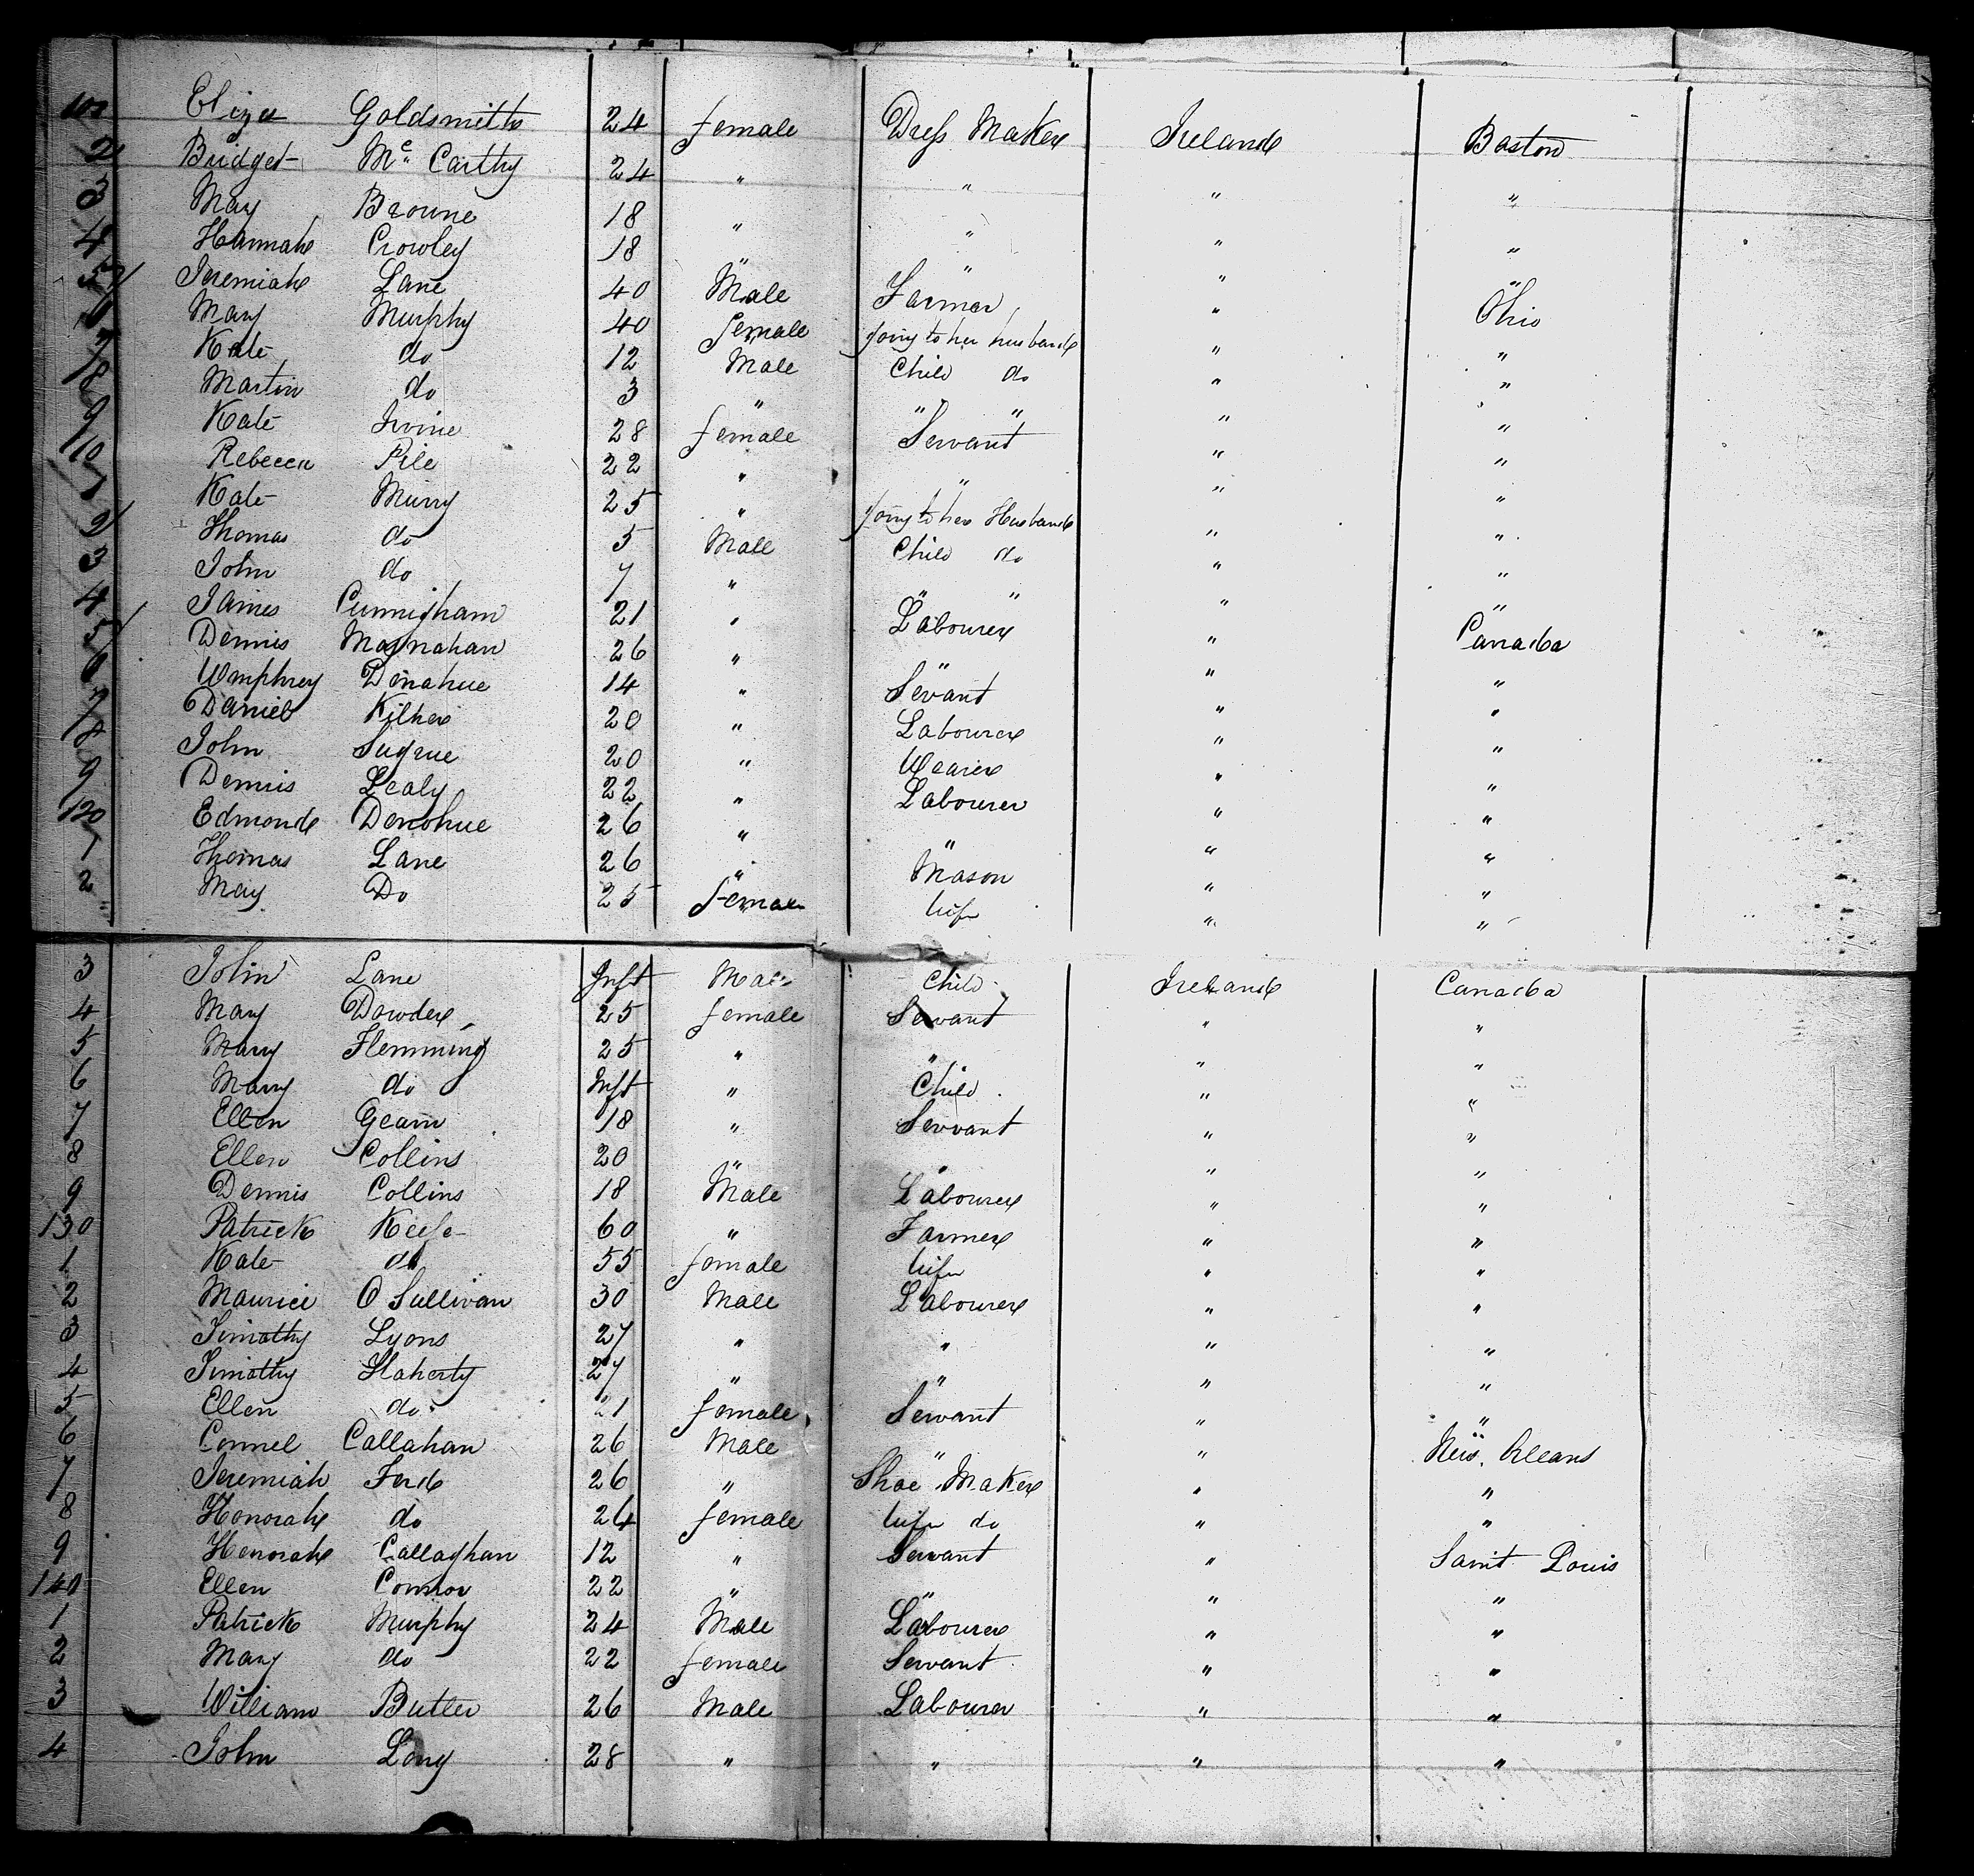 101 Eliza Goldsmith 24 female Dress Maker Ireland Boston
2 Bridget Mc Carthy 24 " " " "
3 May Browne 18 " " " "
4 Hannah Crowley 18 " " " "
5 Jeremiah Lane 40 Male Farmer " Ohio
6 Mary Murphy 40 female going to her husband " "
7 Kate do 12 Male Child do " "
8 Martin do 3 " " " " "
9 Kate Irvine 28 female Servant " "
110 Rebecca Pile 22 " " " "
1 Kate Murry 25 " going to her Husband " "
2 Thomas do 5 Male Child do " "
3 John do 7 " " " " "
4 James Cunnigham 21 " Labourer " Canada
5 Dennis 26 " " " "
6 Umphrey Donahue 14 " Sevant " "
7 Daniel 20 " Labourer " "
8 John Sugrue 20 " " "
9 Dennis Lealy 22 " Labourer " "
120 Edmond Donohue 26 " " " "
1 Thomas Lane 26 " Mason " "
2 May Do 25 female wife " "
3 John Lane Inft Male Child Ireland Canada
4 Mary Dowder 25 female Servant " "
5 Mary Flemming 25 " " " "
6 Mary do Inft " Child " "
7 Ellen 18 " Servant " "
8 Ellen Collins 20 " " " "
9 Dennis Collins 18 Male Labourer " "
130 Patrick Keefe 60 " Farmer " "
1 Kate do 55 female wife " "
2 Maurice O Sullivan 30 Male Labourer " "
3 Timothy Lyons 27 " " " "
4 Timothy Flaherty 27 " " " "
5 Ellen do 21 female Servant " "
6 Connel Callahan 26 Male " " New Orleans
7 Jeremiah Ford 26 " Shoe Maker " "
8 Honorah do 24 female wife do " "
9 Honorah Callaghan 12 " Servant " Saint Louis
140 Ellen Connor 22 " " " "
1 Patrick Murphy 24 Male Labourer " "
2 Mary do 22 female Servant " "
3 William Butler 26 Male Labourer " "
4 John Long 28 " " " "